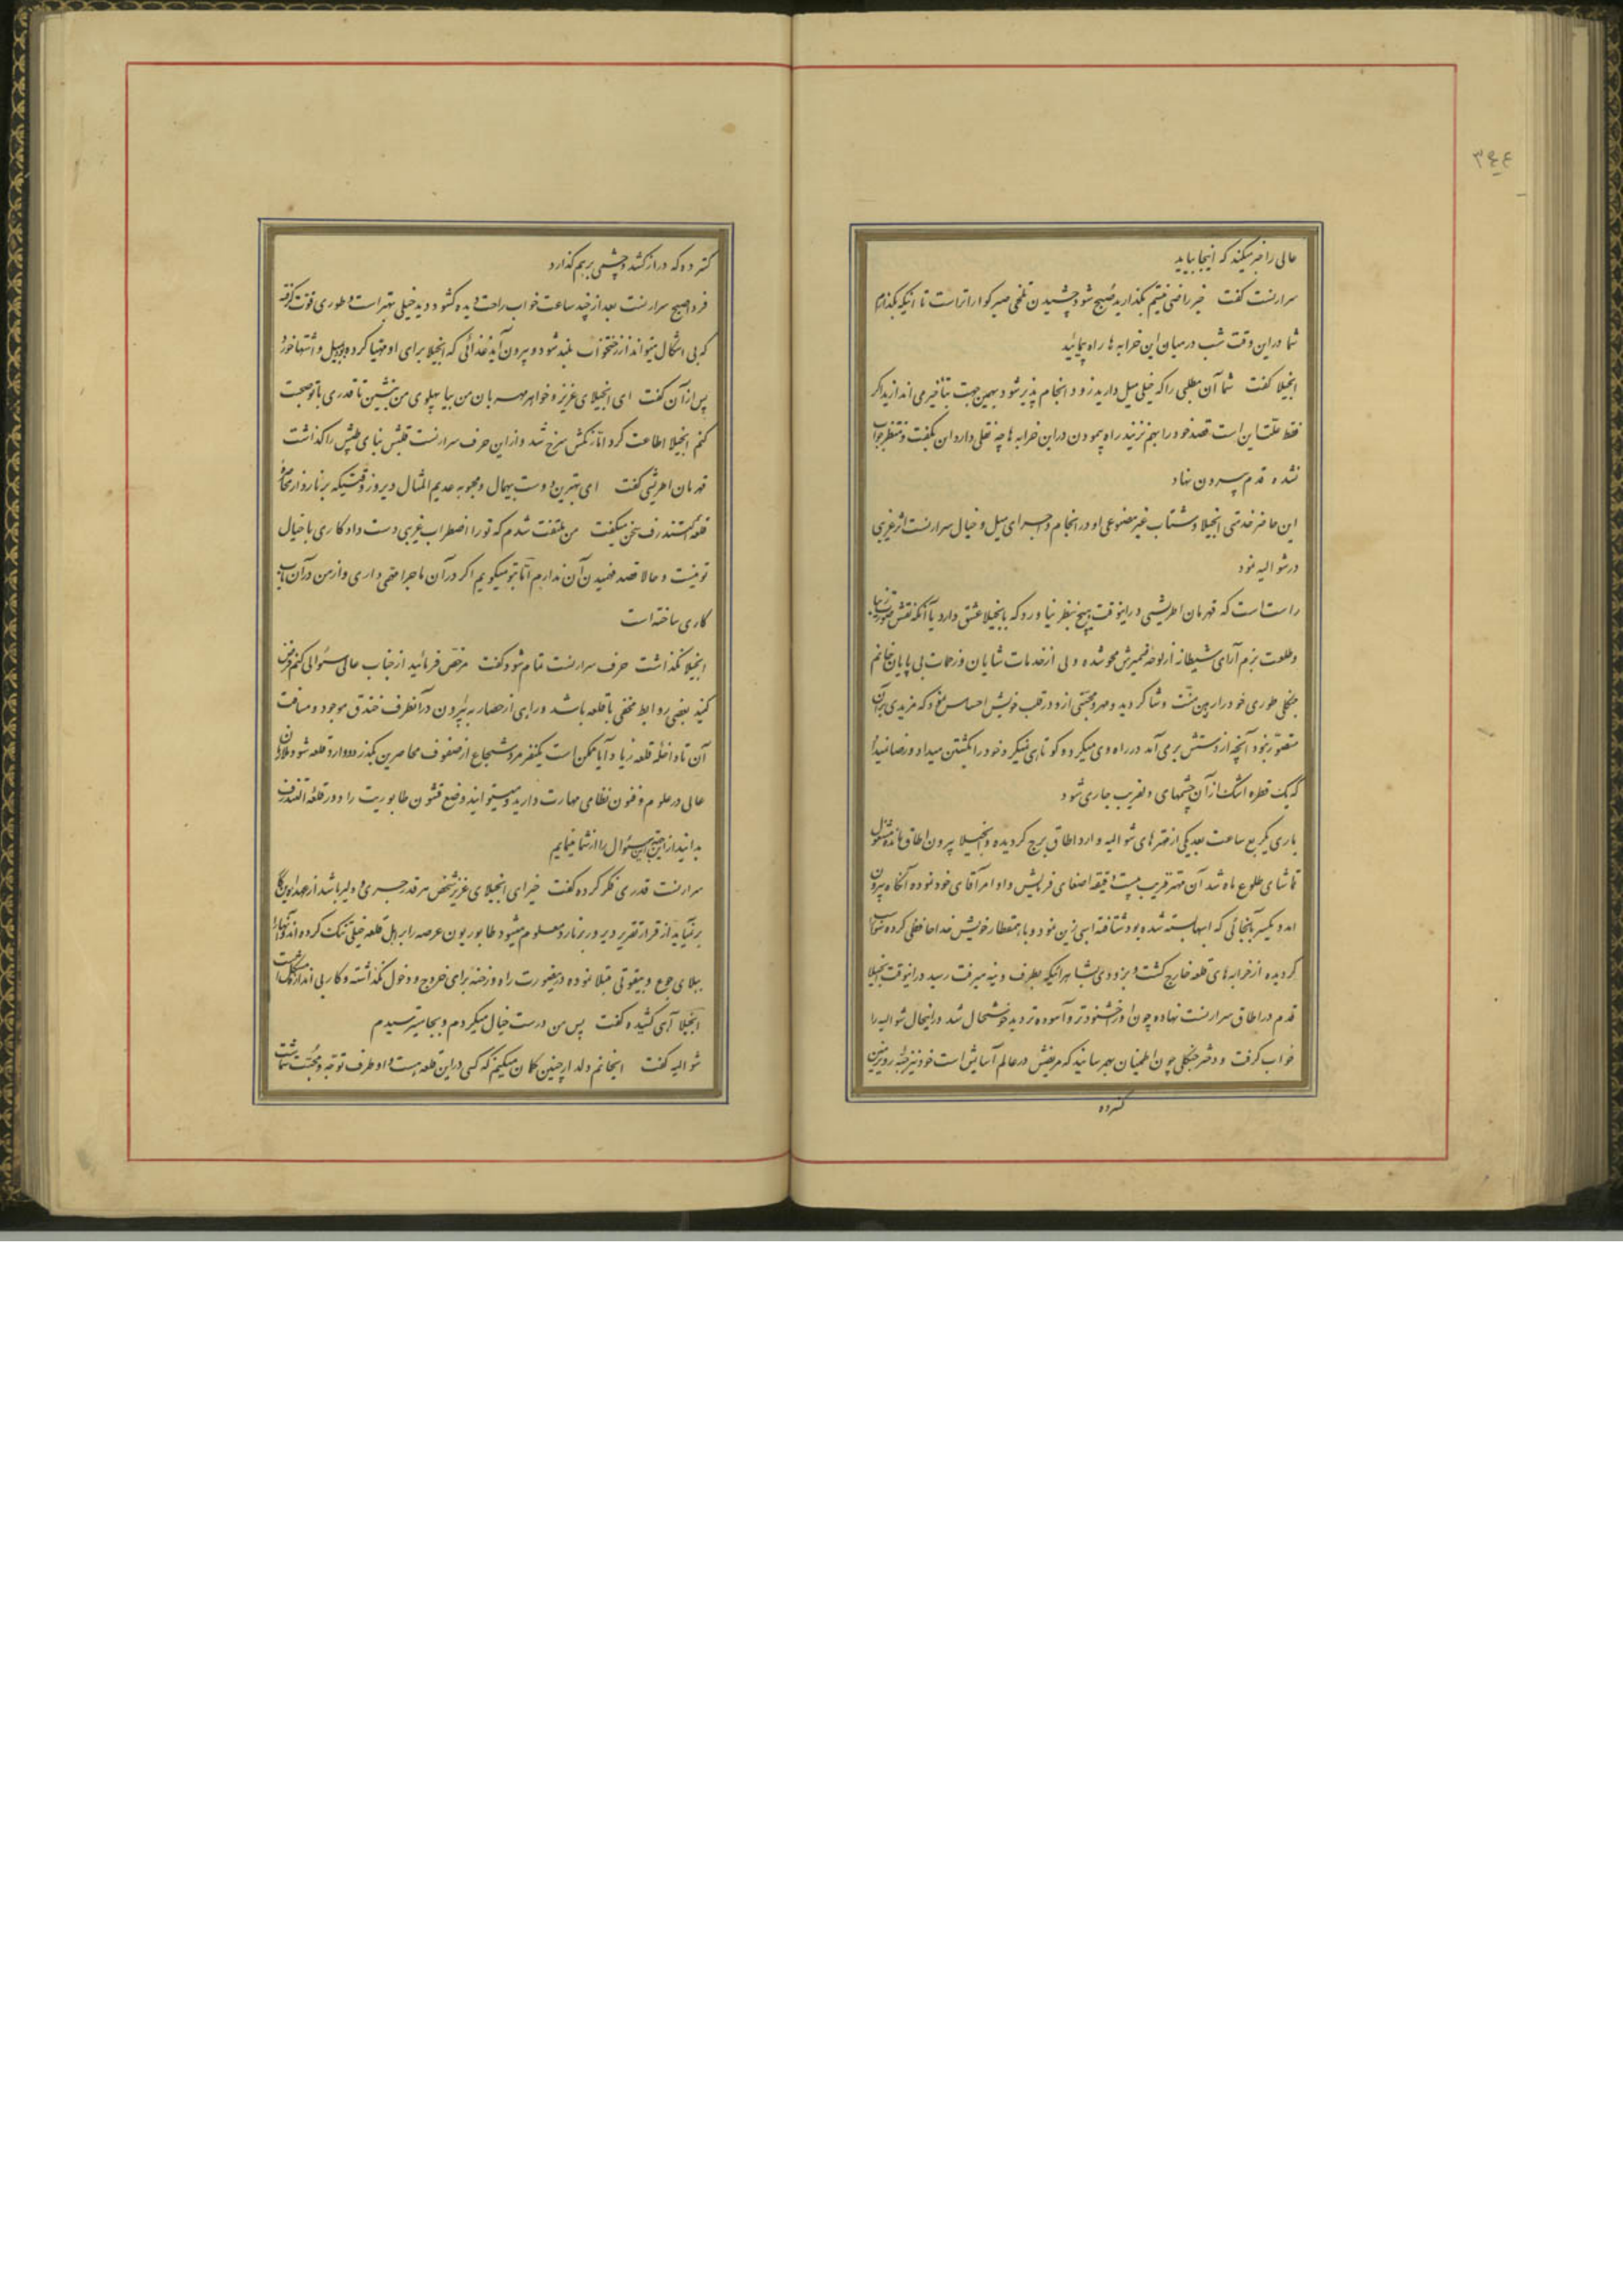 ۳۴۴
عالی را خبر میکند که اینجا بیاید
سرارنست گفت خیر راضی نیستم بگذارید صبح شود چشیدن تلخی صبر گواراتر است تا اینکه بگذارم
شما در این وقت شب در میان این خرابه ها راه پیمائید
انجیلا گفت شما آن مطلبی را که خیلی میل دارید زود انجام پذیر شود بهمین جهت بتأخیر می اندازید اگر
فقط علتش این است قصد خود را بهم نزنید راه پیمودن در این خرابه ها چه نقلی دارد این بگفت و منتظر جواب
نشده قدم بیرون نهاد
این حاضر خدمتی انجیلا و شتاب غیر مصنوعی او در انجام و اجرای میل و خیال سرارنست اثر غریبی
در شوالیه نمود
راست است که قهرمان اطریشی در اینوقت هیچ بنظر نیاورد که بانجیلا عشق دارد یا آنکه نقش صورت زیبا
و طلعت بزم آرای شیطانه از لوحه ضمیرش محو شده ولی از خدمات شایان و زحمات بی پایان خانم
جنگلی طوری خود را رهین منت و شاکر دید و مهر و محبتی از او در قلب خویش احساس نمود که مزیدی بر آن
متصور نبود آنچه از دستش بر می آمد در راه وی میکرد و کوتاهی نمیکرد خود را بکشتن میداد و رضا نمیداد
که یک قطره اشک از آن چشمهای دلفریب جاری شود
باری یکربع ساعت بعد یکی از مهترهای شوالیه وارد اطاق برج گردیده و انجیلا بیرون اطاق مانده مشغول
تماشای طلوع ماه شد آن مهتر قریب بیست دقیقه اصغای فرمایش و اوامر آقای خود نموده آنگاه بیرون
آمد و یکسر بآنجائی که اسبها بسته شده بود شتافته اسبی زین نمود و با همقطار خویش خداحافظی کرده سوار
گردیده از خرابه های قلعه خارج گشت و بزودی بشاهراهیکه بطرف وینه میرفت رسید در اینوقت انجیلا
قدم در اطاق سرارنست نهاده چون او را خشنودتر و آسوده تر دید خوشحال شد در اینحال شوالیه را
خواب گرفت و دختر جنگلی چون اطمینان بهم رسانید که مریضش در عالم آسایش است خود نیز جبه روی زمین
گسترده
گسترده که دراز کشد و چشمی برهم گذارد
فردا صبح سرارنست بعد از چند ساعت خواب راحت دیده گشود و دید خیلی بهتر است و طوری قوت گرفته
که بی اشکال میتواند از رختخواب بلند شود و بیرون آید غذائی که انجیلا برای او مهیا کرده بود بمیل و اشتها خورد
پس از آن گفت ای انجیلای عزیز و خواهر مهربان من بیا پهلوی من بنشین تا قدری با تو صحبت
کنم انجیلا اطاعت کرد اما رنگش سرخ شد و از این حرف سرارنست قلبش بنای طپش را گذاشت
قهرمان اطریشی گفت ای بهترین دوست بیهمال و محبوبه عدیم المثال دیروز وقتیکه برنارد از محاصره
قلعه التندرف سخن میگفت من ملتفت شدم که تو را اضطراب غریبی دست داد کاری با خیال
تو نیست و حالا قصد فهمیدن آن ندارم اما بتو میگویم اگر در آن ماجرا همی داری و از من در آن باب
کاری ساخته است
انجیلا نگذاشت حرف سرارنست تمام شود گفت مرخص فرمائید از جناب عالی سئوالی کنم فرض
کنید بعضی روابط مخفی با قلعه باشد و راهی از حصار به بیرون در آنطرف خندق موجود و مسافت
آن تا داخله قلعه زیاد آیا ممکن است یکنفر مرد شجاع از صفوف محاصرین بگذرد و وارد قلعه شود
عالی در علوم و فنون نظامی مهارت دارید و میتوانید وضع قشون طابوریت را دور قلعه التندرف
بدانید از این جهت این سئوال را از شما مینمایم
سرارنست قدری فکر کرده گفت خیر ای انجیلای عزیز شخص هر قدر جسور و دلیر باشد از عهده این کار
برنیاید از قرار تقریر دیروز برنارد معلوم میشود طابوریون عرصه را بر اهل قلعه خیلی تنگ کرده اند و آنها را
ببلای جوع و بیقوتی مبتلا نموده در اینصورت راه و رخنه برای خروج و دخول نگذاشته و کار بی اندازه مشکل است
انجیلا آهی کشیده گفت پس من درست خیال میکردم و بجا میترسیدم
شوالیه گفت ای خانم ولدار چنین گمان میکنم که کسی در این قلعه هست و او طرف توجه و محبت شماست